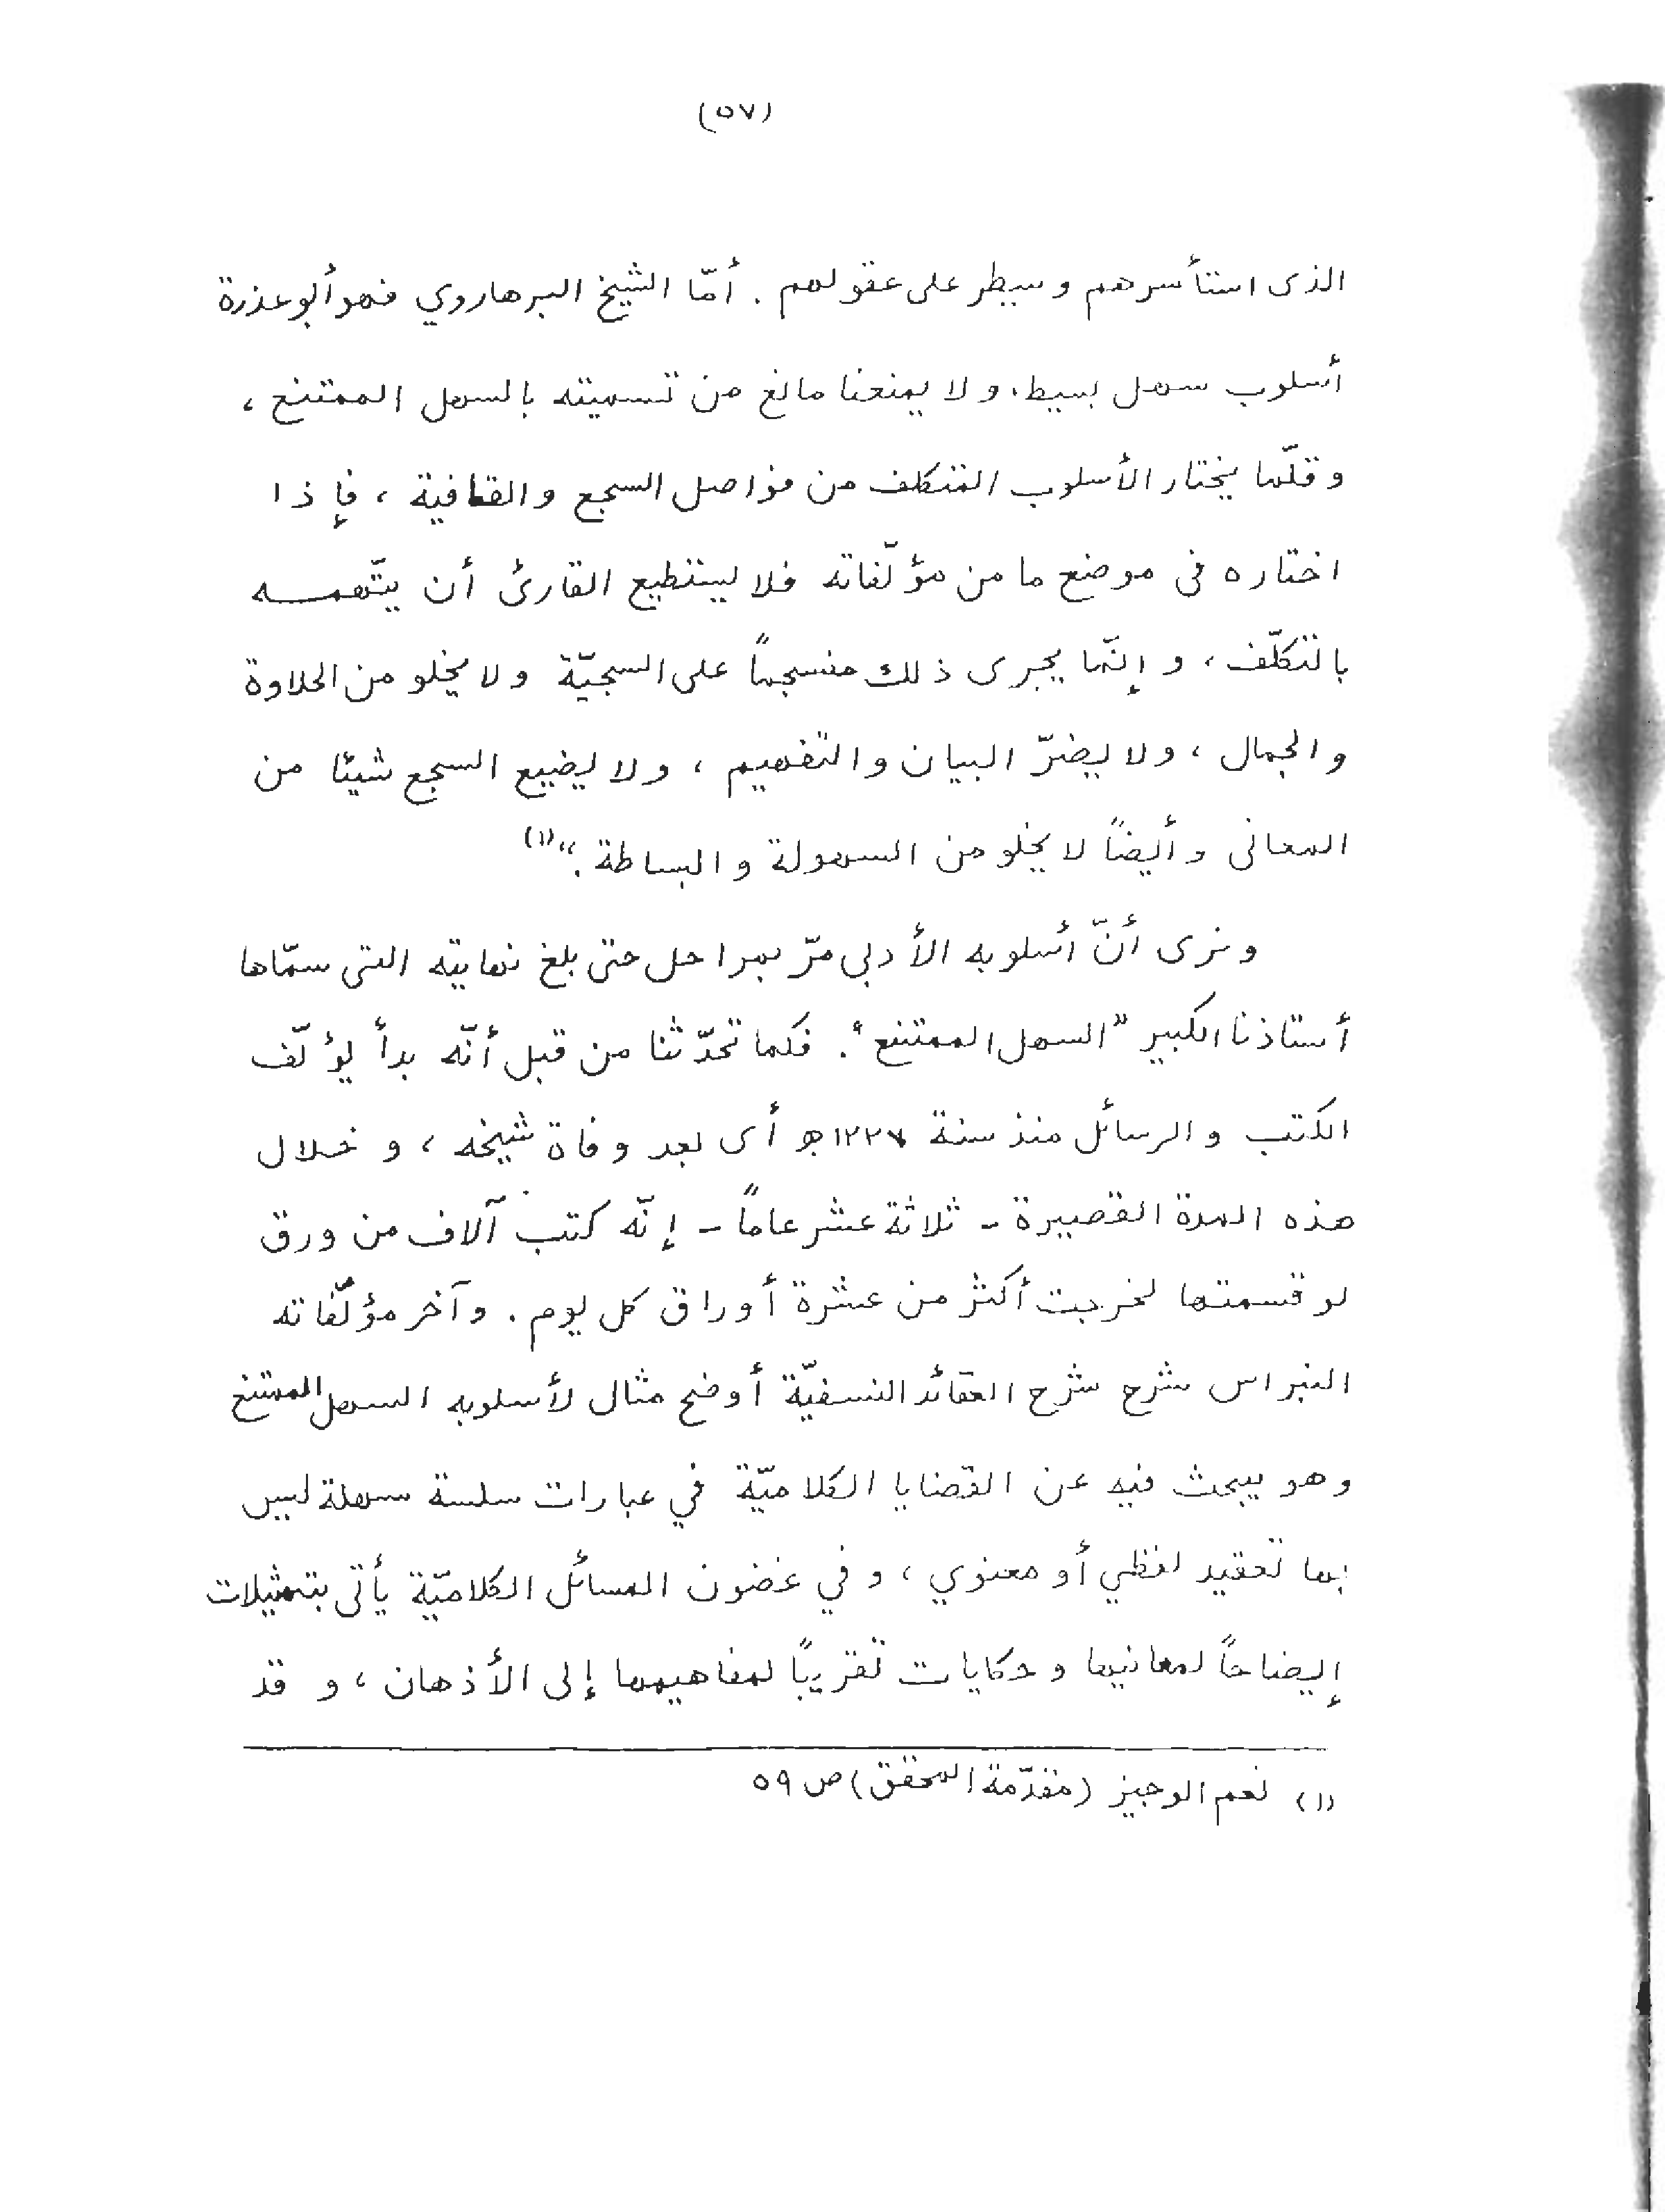 (٥٧)
الذى استأسرهم وسيطر على عقولهم . أمّا الشيخ البرهاروي فهو أبو عذرة
أسلوب سهل بسيط، ولا يمنعنا مانع من تسميته بالسهل الممتنع ،
وقلّما يختار الأسلوب المتكلف من فواصل السجع والقافية ، فإذا
اختاره فى موضع ما من مؤلّفاته فلا يستطيع القارئ أن يتّهمه
بالتكلّف ، وإنّما يجرى ذلك منسجماً على السجيّة ولا يخلو من الحلاوة
والجمال ، ولا يضرّ البيان والتفهيم ، ولا يضيع السجع شيئا من
المعانى وأيضاً لا يخلو من السهولة والبساطة .“(١)
ونرى أنّ أسلوبه الأدبى مرّ بمراحل حتى بلغ نهايته التى سمّاها
أستاذنا الكبير "السهل الممتنع" . فكما تحدّثنا من قبل أنّه بدأ يؤلّف
الكتب والرسائل منذ سنة ١٢٢٧هـ أى بعد وفاة شيخه ، وخلال
هذه المدة القصيرة - ثلاثة عشر عاماً - إنّه كتب آلاف من ورق
لو قسمتها لخرجت أكثر من عشرة أوراق كل يوم . وآخر مؤلّفاته
النبراس شرح شرح العقائد النسفيّة أوضح مثال لأسلوبه السهل الممتنع
وهو يبحث فيه عن القضايا الكلاميّة في عبارات سلسة سهلة ليس
بها تعقيد لفظي أو معنوي ، وفي غضون المسائل الكلاميّة يأتى بتمثيلات
إيضاحاً لمعانيها وحكايات تقريبًا لمفاهيمها إلى الأذهان ، وقد
(١) نعم الوجيز (مقدّمة المحقق) ص ٥٩